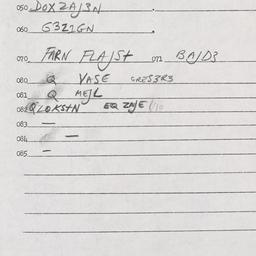 050 DOXZAJ3N
060 G321GN
070 FARN FLAJSt 071 BAJD3
080 Q VASE GRES3R3
081 Q MEJL
082 QLOKStN EQ ZAJE
083 —
084 —
085 —